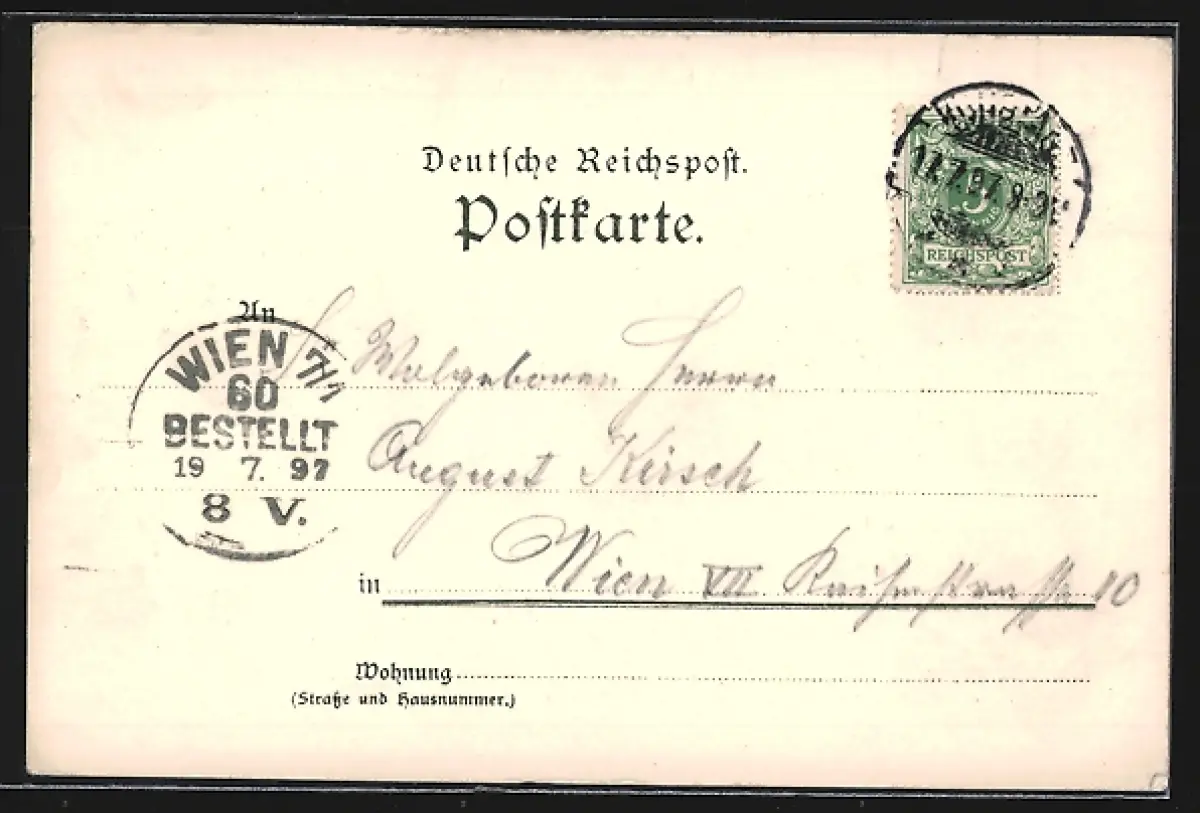 Deutsche Reichspost.
Postkarte.
17.7.97 8-9N.
5
REICHSPOST
An
WIEN 7/1
60
BESTELLT
19 7. 97
8 V.
Wolgeboren Herrn
August Kirsch
in Wien VII 10
Wohnung
(Straße und Hausnummer.)